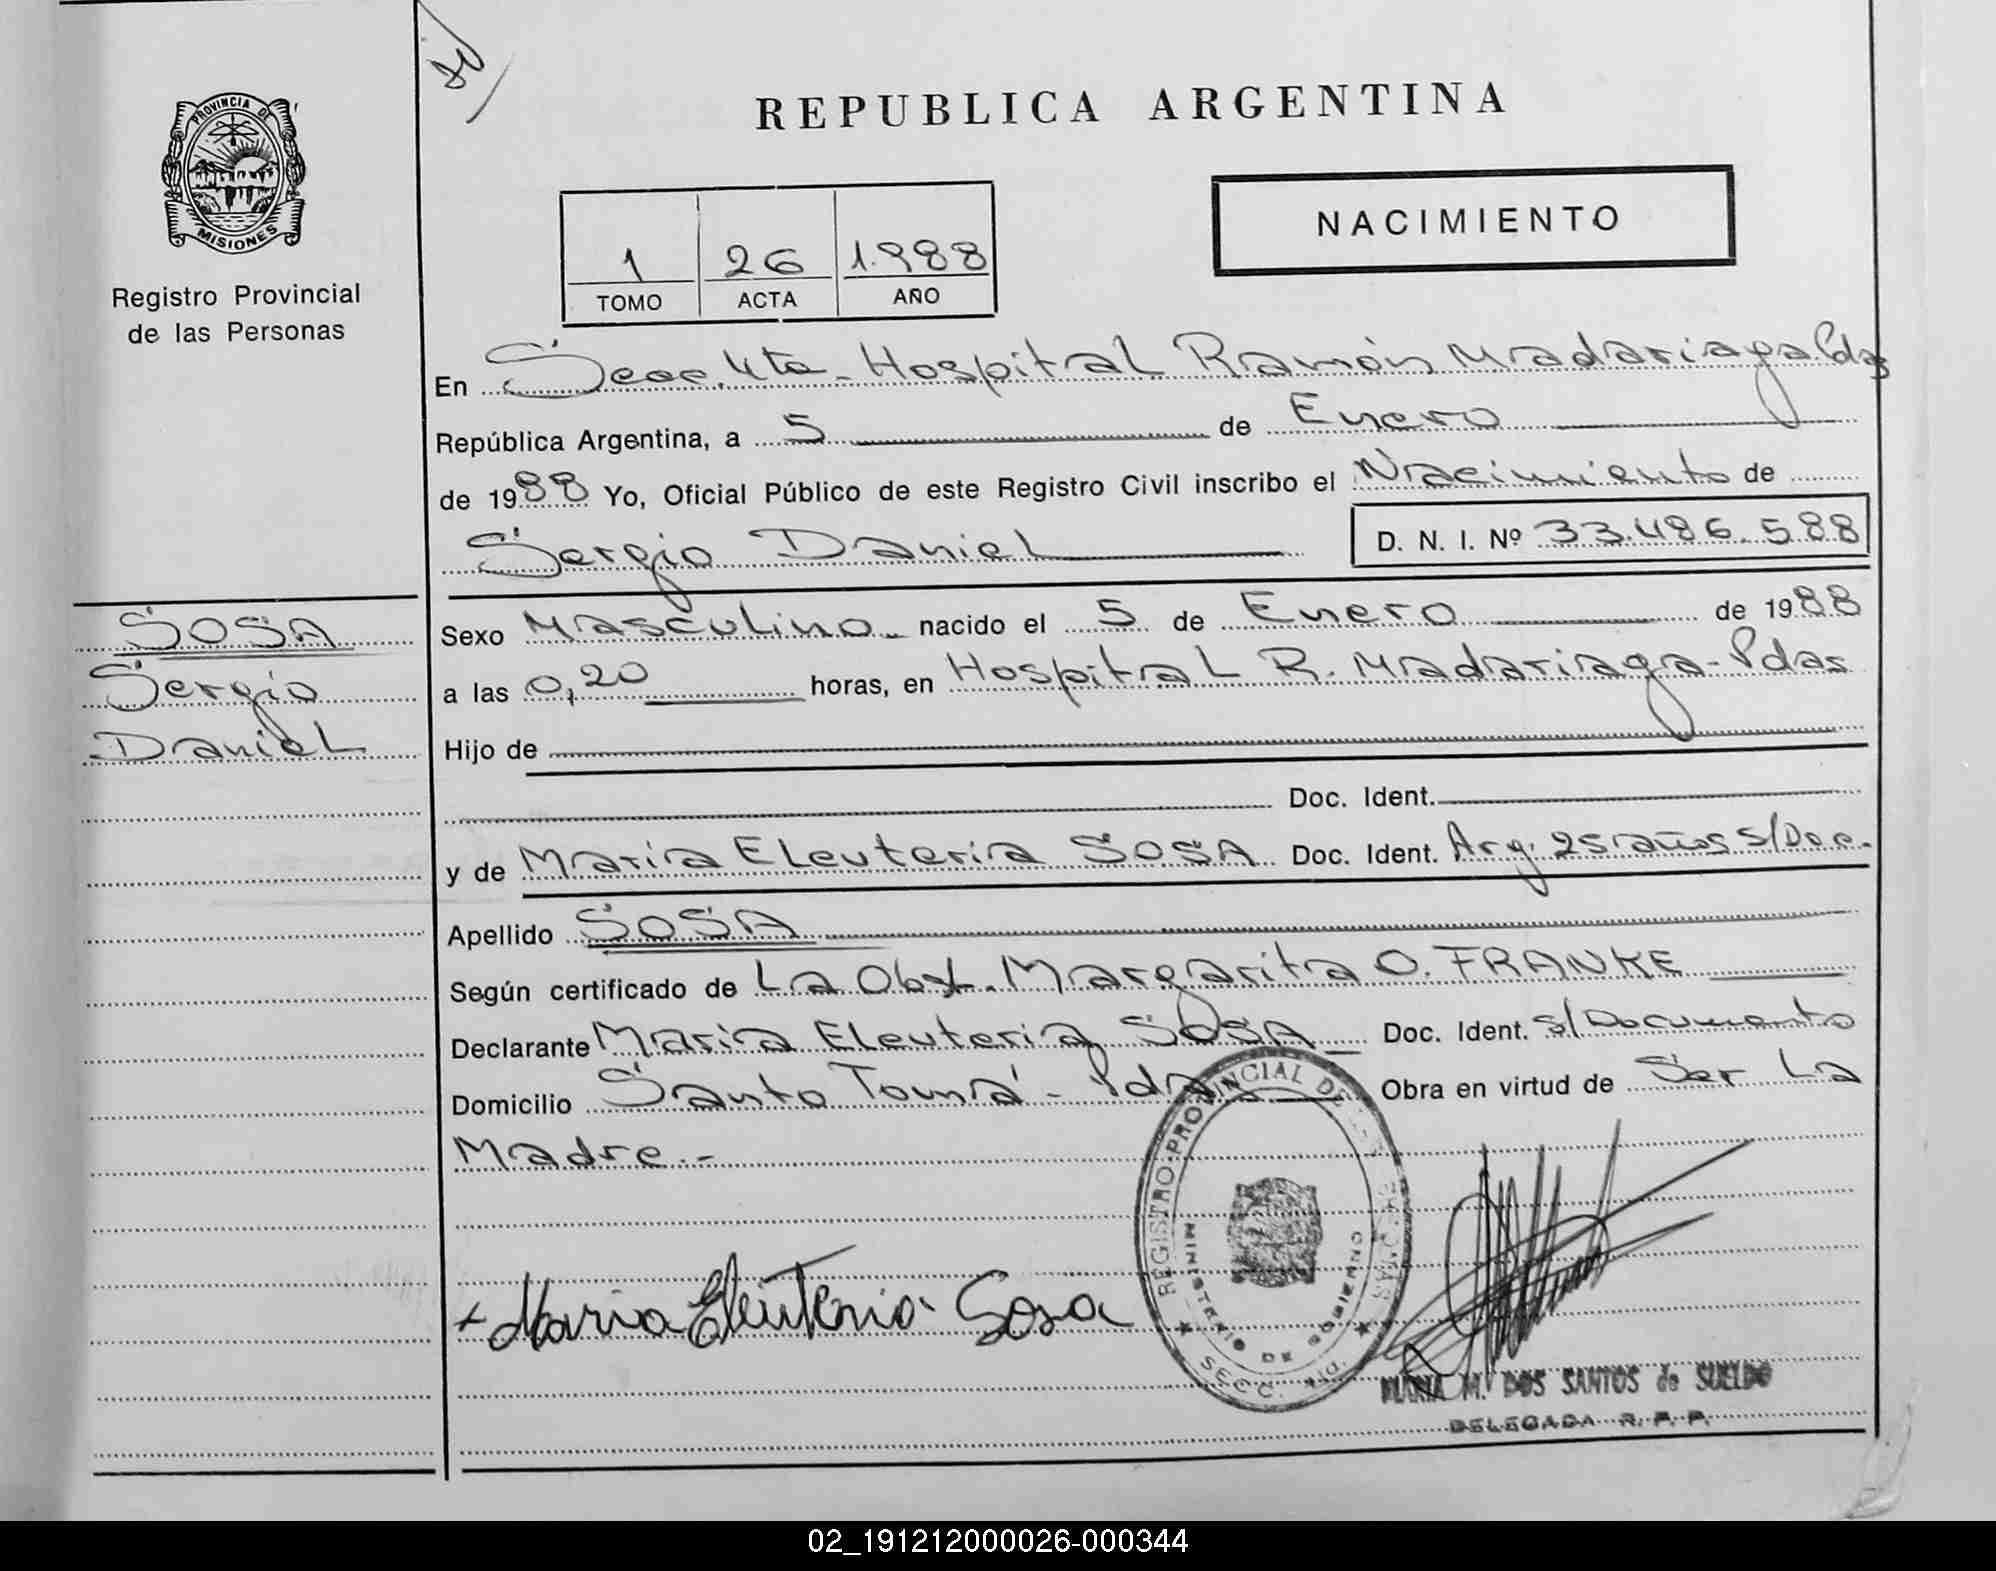 REPUBLICA ARGENTINA
PROVINCIA DE
MISIONES
Registro Provincial
de las Personas
1 26 1.988
TOMO ACTA AÑO
NACIMIENTO
En Secc. 4ta - Hospital Ramón Madariaga. Pdas
República Argentina, a 5 de Enero
de 1988 Yo, Oficial Público de este Registro Civil inscribo el Nacimiento de
Sergio Daniel D. N. I. Nº 33.486.588
SOSA
Sergio
Daniel
Sexo Masculino nacido el 5 de Enero de 1988
a las 0,20 horas, en Hospital R. Madariaga - Pdas
Hijo de
Doc. Ident.
y de Maria Eleuteria SOSA Doc. Ident. Arg. 25 años s/Doc.
Apellido SOSA
Según certificado de La Obst. Margarita O. FRANKE
Declarante Maria Eleuteria SOSA Doc. Ident. s/Documento
Domicilio Santo Tomá - Pdas Obra en virtud de Ser La
Madre.-
REGISTRO PROVINCIAL DE PERSONAS
MINISTERIO DE GOBIERNO
SECC. 4ta.
Maria Eleuteria Sosa
MARIA M. DOS SANTOS de SUELDO
DELEGADA R. P. P.
02_191212000026-000344